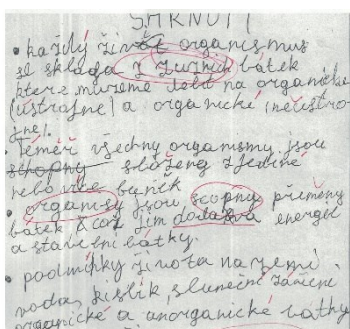 SHRNUTÍ
• každý život organismus
se skládá z zuzních bátek
ktere mužeme dělit na organické
(ústrojne) a organické (neústro
jne).
Téměř všechny organismy jsou
schopny složeny z jediné
nebo více buněk
• organismy jsou scopny přiměny
bátek &což jim dodává energei
a stavební bátky.
• podmínky života na zemi
voda, kislík, sluneční záření
organické a anorganické batky